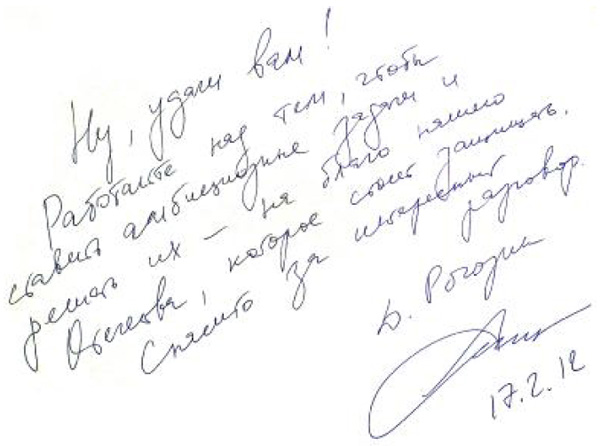 Ну, удачи вам!
Работайте над тем, чтобы
ставить амбициозные задачи и
решать их — на благо нашего
Отечества, которое стоит защищать.
Спасибо за интересный разговор.
Д. Рогозин
17.2.12